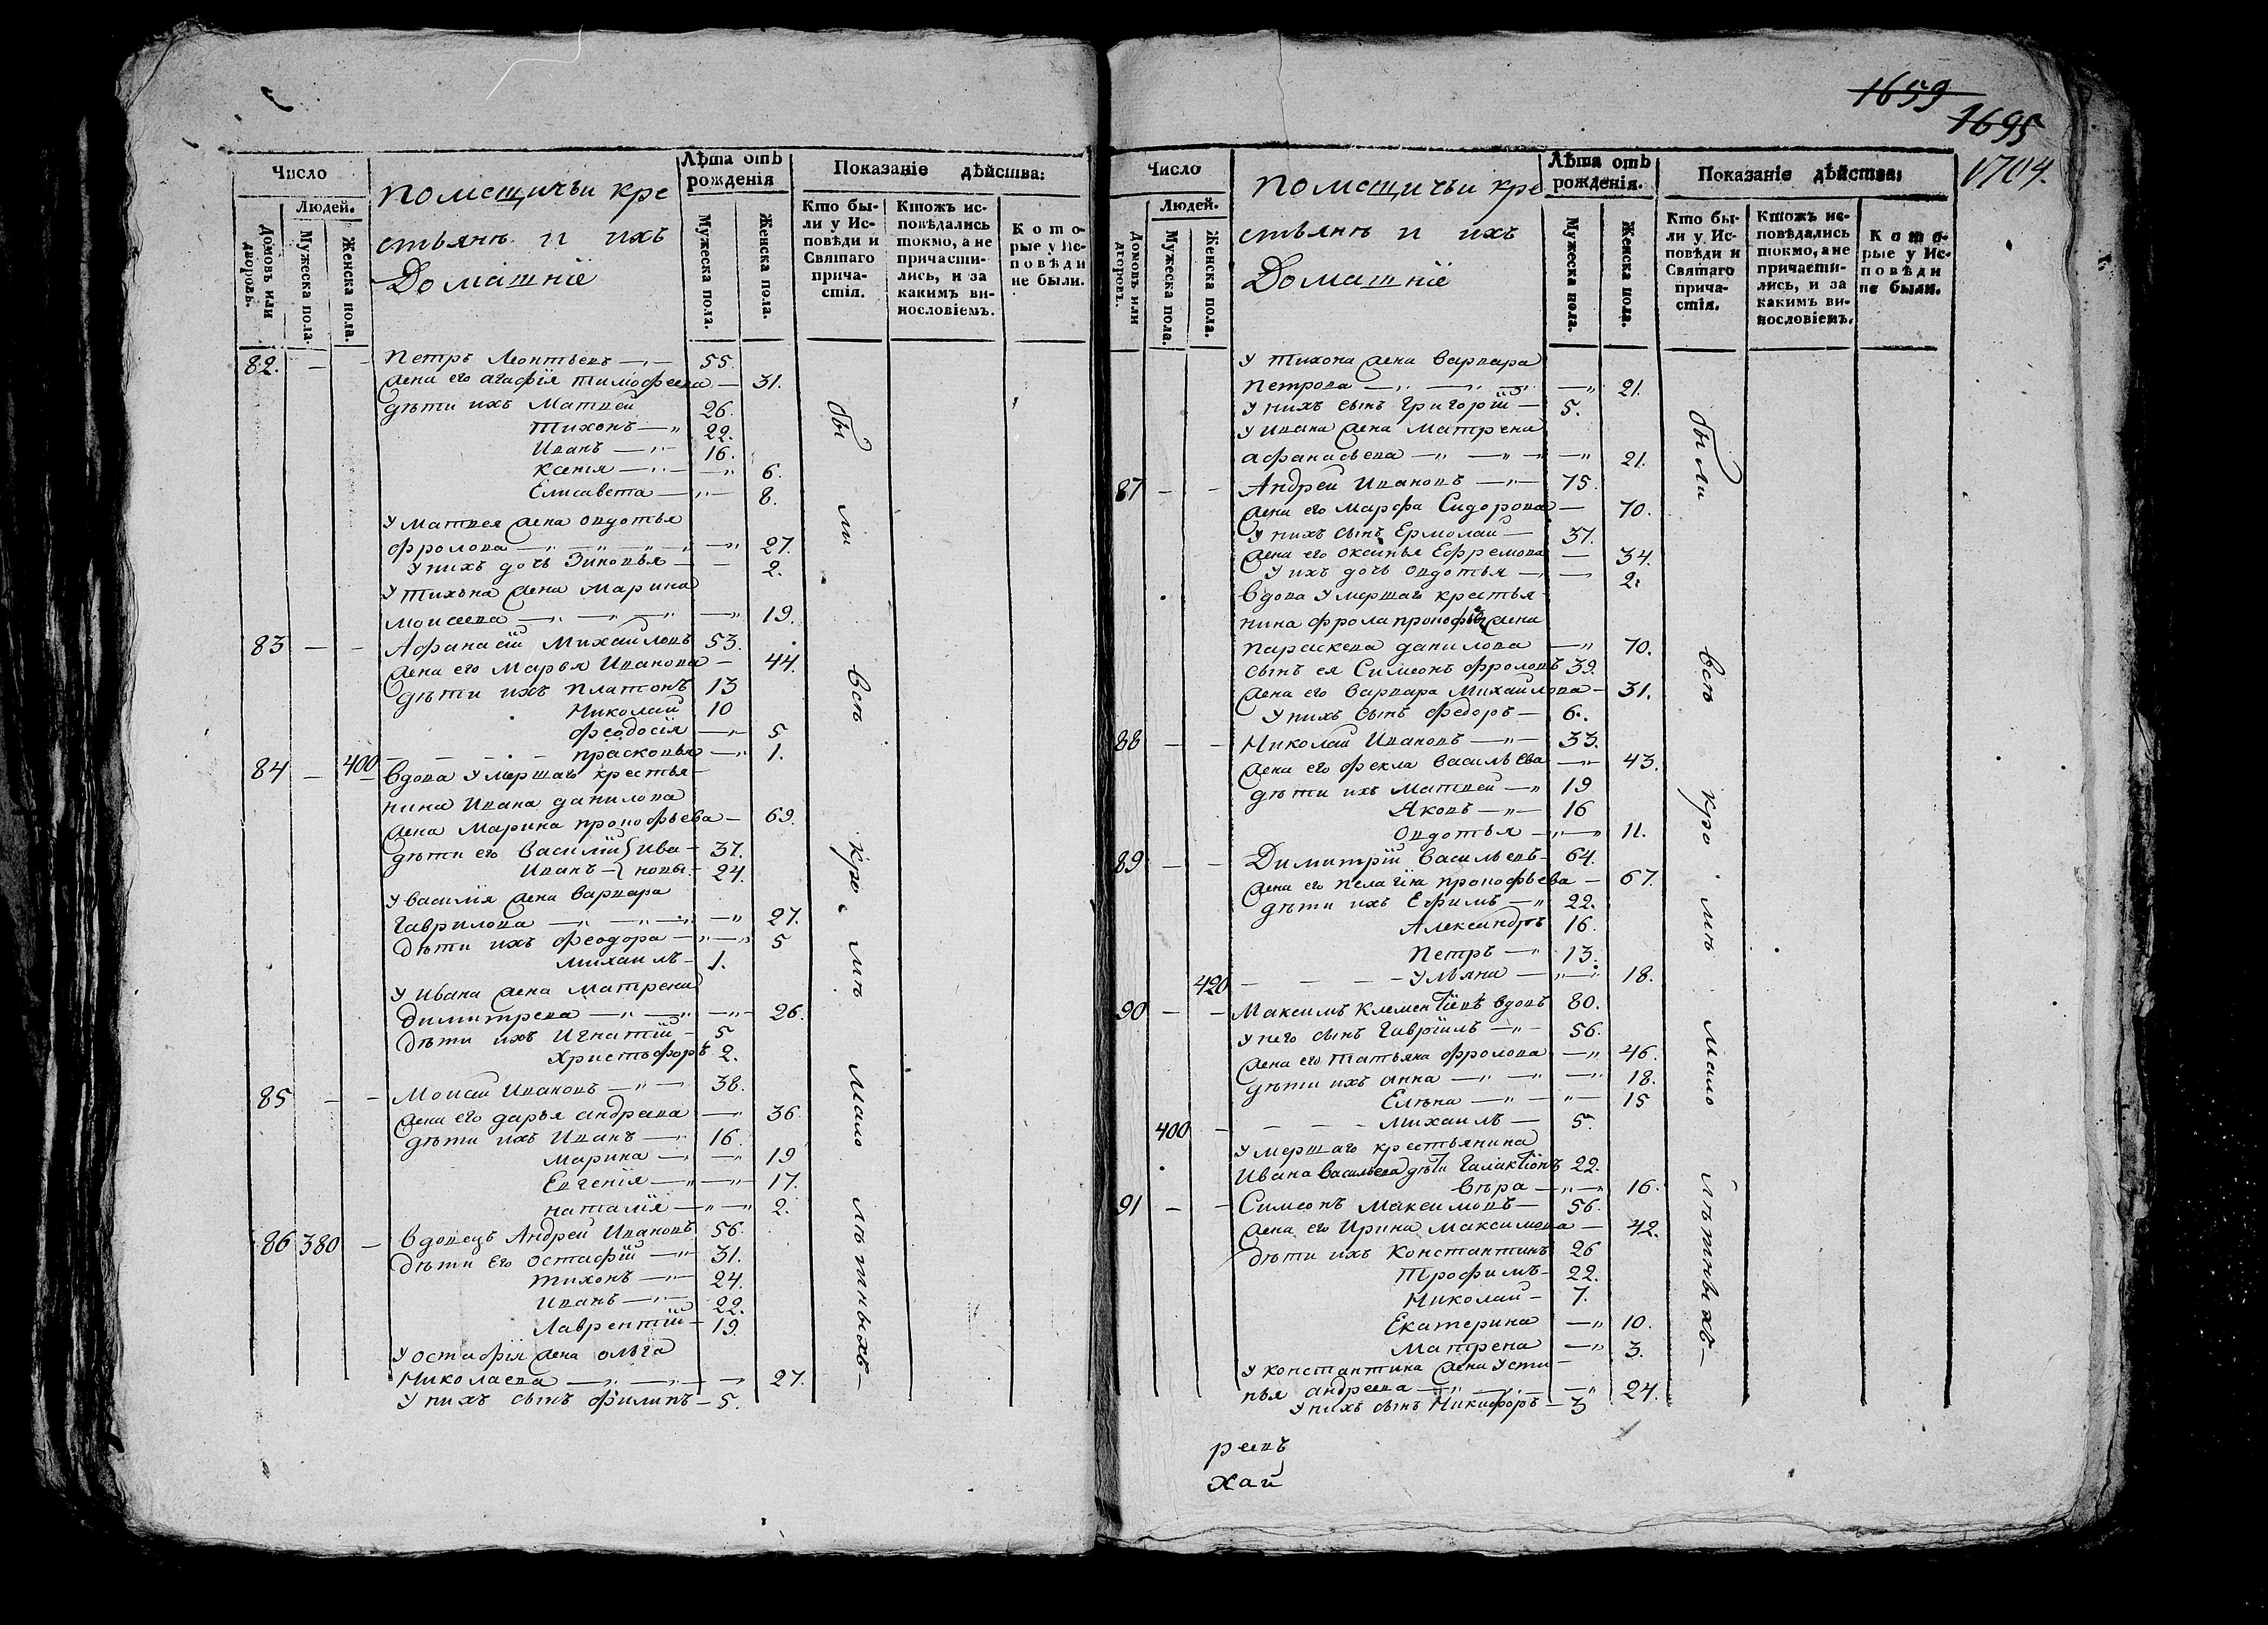 1659
1695
1704.
Число
Людей.
Домовъ или дворовъ.
Мужеска пола.
Женска пола.
помещичьи кре
стьянъ и ихъ
Домашніе
Лѣта отъ рожденія
Мужеска пола.
Женска пола.
Показаніе дѣйства:
Кто бы-
ли у Ис-
повѣди и
Святаго
прича-
стія.
Ктожъ ис-
повѣдались
токмо, а не
причасти-
лись, и за
какимъ ви-
нословіемъ.
Кото-
рые у Ис-
повѣди
не были.
82. Петръ Леонтьевъ 55.
жена его агафія тимофеева 31.
дѣти ихъ Матвей 26.
тихонъ 22.
Иванъ 16.
Ксенія 6.
Елисавета 8.
У Матвея жена овдотья
фролова 27.
У нихъ дочь Зиновья 2.
У тихона жена Марина
Моисеева 19.
83 Афанасій Михайловъ 53.
жена его Марья Иванова 44.
дѣти ихъ Платонъ 13
Николай 10
феодосія 5
прасковья 1.
84 400 вдова умершаго крестья-
нина Ивана данилова
жена Марина прокофьева 69.
дѣти его Василій } Ива- 37.
Иванъ } новы 24.
У василія жена варвара
гаврилова 27.
дѣти ихъ феодора 5
михаилъ 1.
У Ивана жена матрена
димитрева 26.
дѣти ихъ Игнатій 5
христофоръ 2.
85 Моисей Ивановъ 38.
жена его дарья андреева 36.
дѣти ихъ Иванъ 16.
Марина 19
Евгенія 17.
наталія 2.
86 380 вдовецъ Андрей Ивановъ 56.
дѣти его остафій 31.
тихонъ 24.
Иванъ 22.
Лаврентій 19.
У остафія жена ольга
Николаева 27.
У нихъ сынъ филипъ 5.
бы ли всѣ кро мѣ мало лѣтныхъ
Число
Людей.
Домовъ или дворовъ.
Мужеска пола.
Женска пола.
помещичьи кре
стьянъ и ихъ
Домашніе
Лѣта отъ рожденія.
Мужеска пола.
Женска пола.
Показаніе дѣйства:
Кто бы-
ли у Ис-
повѣди и
Святаго
прича-
стія.
Ктожъ ис-
повѣдались
токмо, а не
причасти-
лись, и за
какимъ ви-
нословіемъ.
Кото-
рые у Ис-
повѣди
не были.
У тихона жена варвара
петрова 21.
У нихъ сынъ григорій 5.
У ивана жена матрена
афанасьева 21.
87 Андрей Ивановъ 75.
жена его марфа Сидорова 70.
У нихъ сынъ Ермолай 37.
жена его оксинья Ефремова 34.
У ихъ дочь овдотья 2.
вдова умершаго крестья-
нина фрола прокофьева жена
параскева данилова 70.
сынъ ея Симеонъ фроловъ 39.
жена его варвара Михайлова 31.
У нихъ сынъ федоръ 6.
88 Николай Ивановъ 33.
жена его фекла васильева 43.
дѣти ихъ матвей 19
Яковъ 16
Овдотья 11.
89 Димитрій васильевъ 64.
жена его пелагія прокофьева 67.
дѣти ихъ Ефимъ 22.
Александръ 16.
Петръ 13.
420 Ульяна 18.
90 Максимъ Клементіевъ вдовъ 80.
У него сынъ гавріилъ 56.
жена его татьяна фролова 46.
дѣти ихъ анна 18.
Елѣна 15
400 михаилъ 5.
Умершаго крестьянина
Ивана васильева дѣти галактіонъ 22.
вѣра 16.
91 Симеонъ Максимовъ 56.
жена его Ирина максимова 42.
дѣти ихъ Константинъ 26
Трофимъ 22.
Николай 7.
Екатерина 10.
Матрена 3.
У константина жена усти-
нья андреева 24.
У нихъ сынъ Никифоръ 3
были всѣ кро мѣ мало лѣтныхъ
реевъ
хай